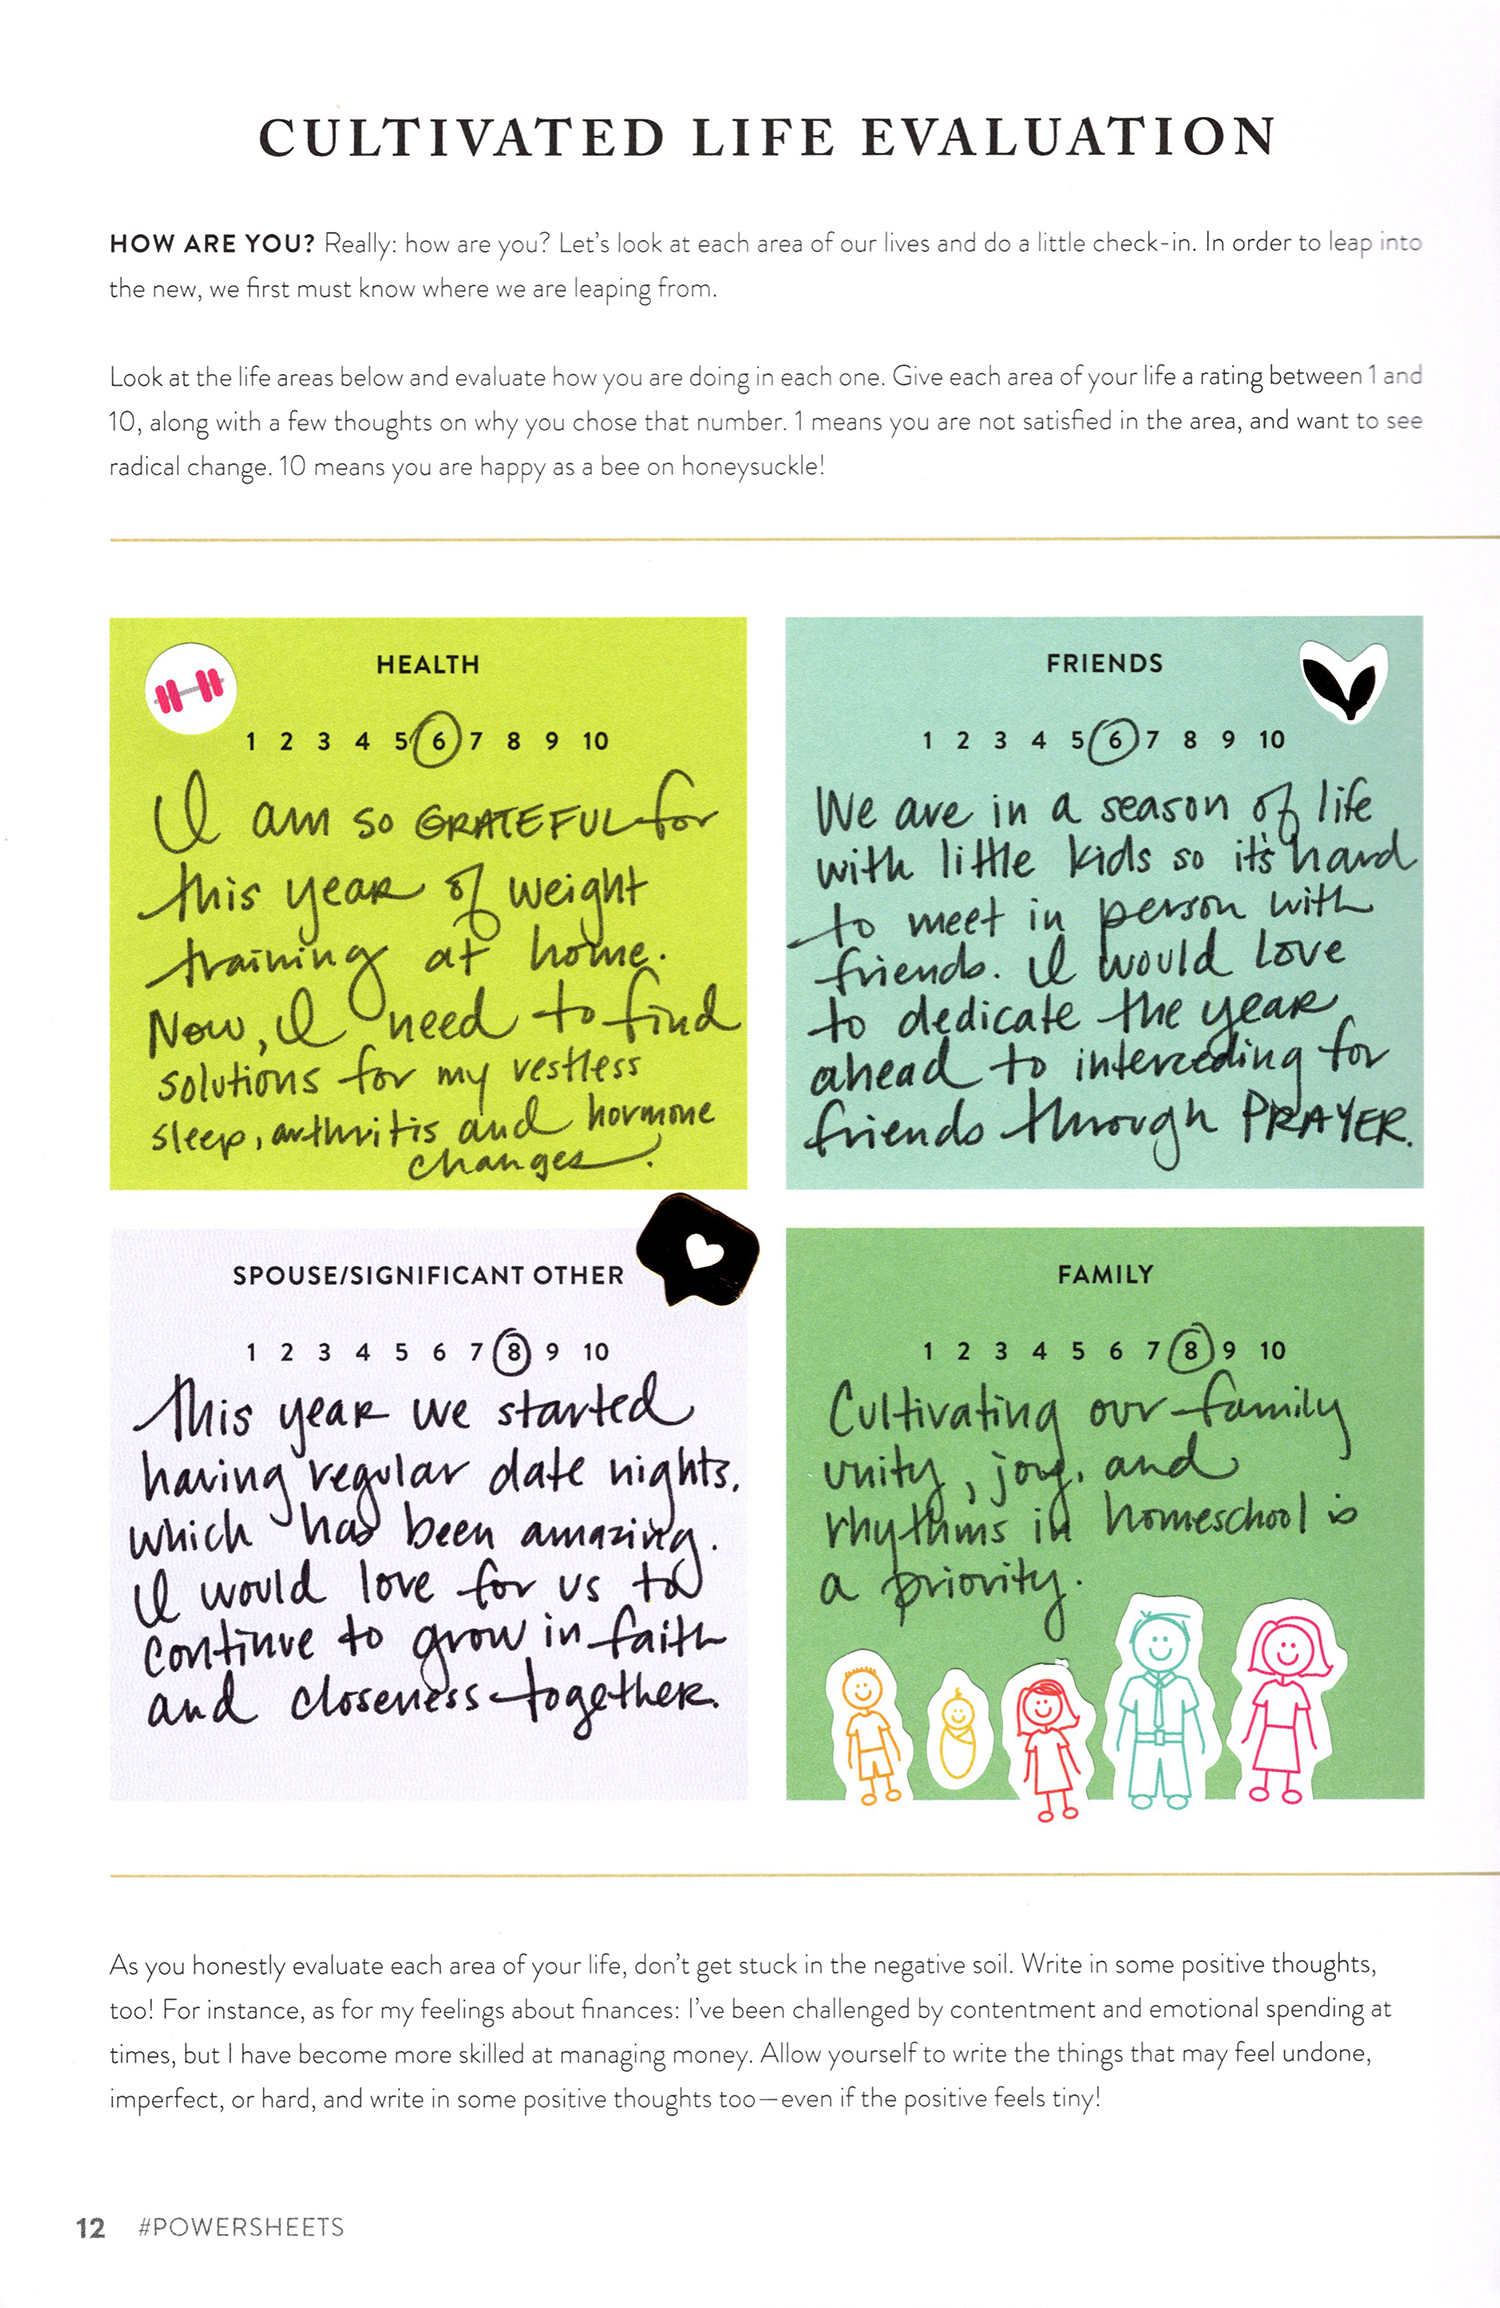 CULTIVATED LIFE EVALUATION
HOW ARE YOU? Really: how are you? Let's look at each area of our lives and do a little check-in. In order to leap into
the new, we first must know where we are leaping from.
Look at the life areas below and evaluate how you are doing in each one. Give each area of your life a rating between 1 and
10, along with a few thoughts on why you chose that number. 1 means you are not satisfied in the area, and want to see
radical change. 10 means you are happy as a bee on honeysuckle!
HEALTH
1 2 3 4 5 6 7 8 9 10
I am so GRATEFUL for
this year of weight
training at home.
Now, I need to find
solutions for my restless
sleep, arthritis and hormone
changes.
FRIENDS
1 2 3 4 5 6 7 8 9 10
We are in a season of life
with little kids so it's hard
to meet in person with
friends. I would love
to dedicate the year
ahead to interceding for
friends through PRAYER.
SPOUSE/SIGNIFICANT OTHER
1 2 3 4 5 6 7 8 9 10
This year we started
having regular date nights,
which has been amazing.
I would love for us to
continue to grow in faith
and closeness together.
FAMILY
1 2 3 4 5 6 7 8 9 10
Cultivating our family
unity, joy, and
rhythms in homeschool is
a priority.
As you honestly evaluate each area of your life, don't get stuck in the negative soil. Write in some positive thoughts,
too! For instance, as for my feelings about finances: I've been challenged by contentment and emotional spending at
times, but I have become more skilled at managing money. Allow yourself to write the things that may feel undone,
imperfect, or hard, and write in some positive thoughts too—even if the positive feels tiny!
12 #POWERSHEETS